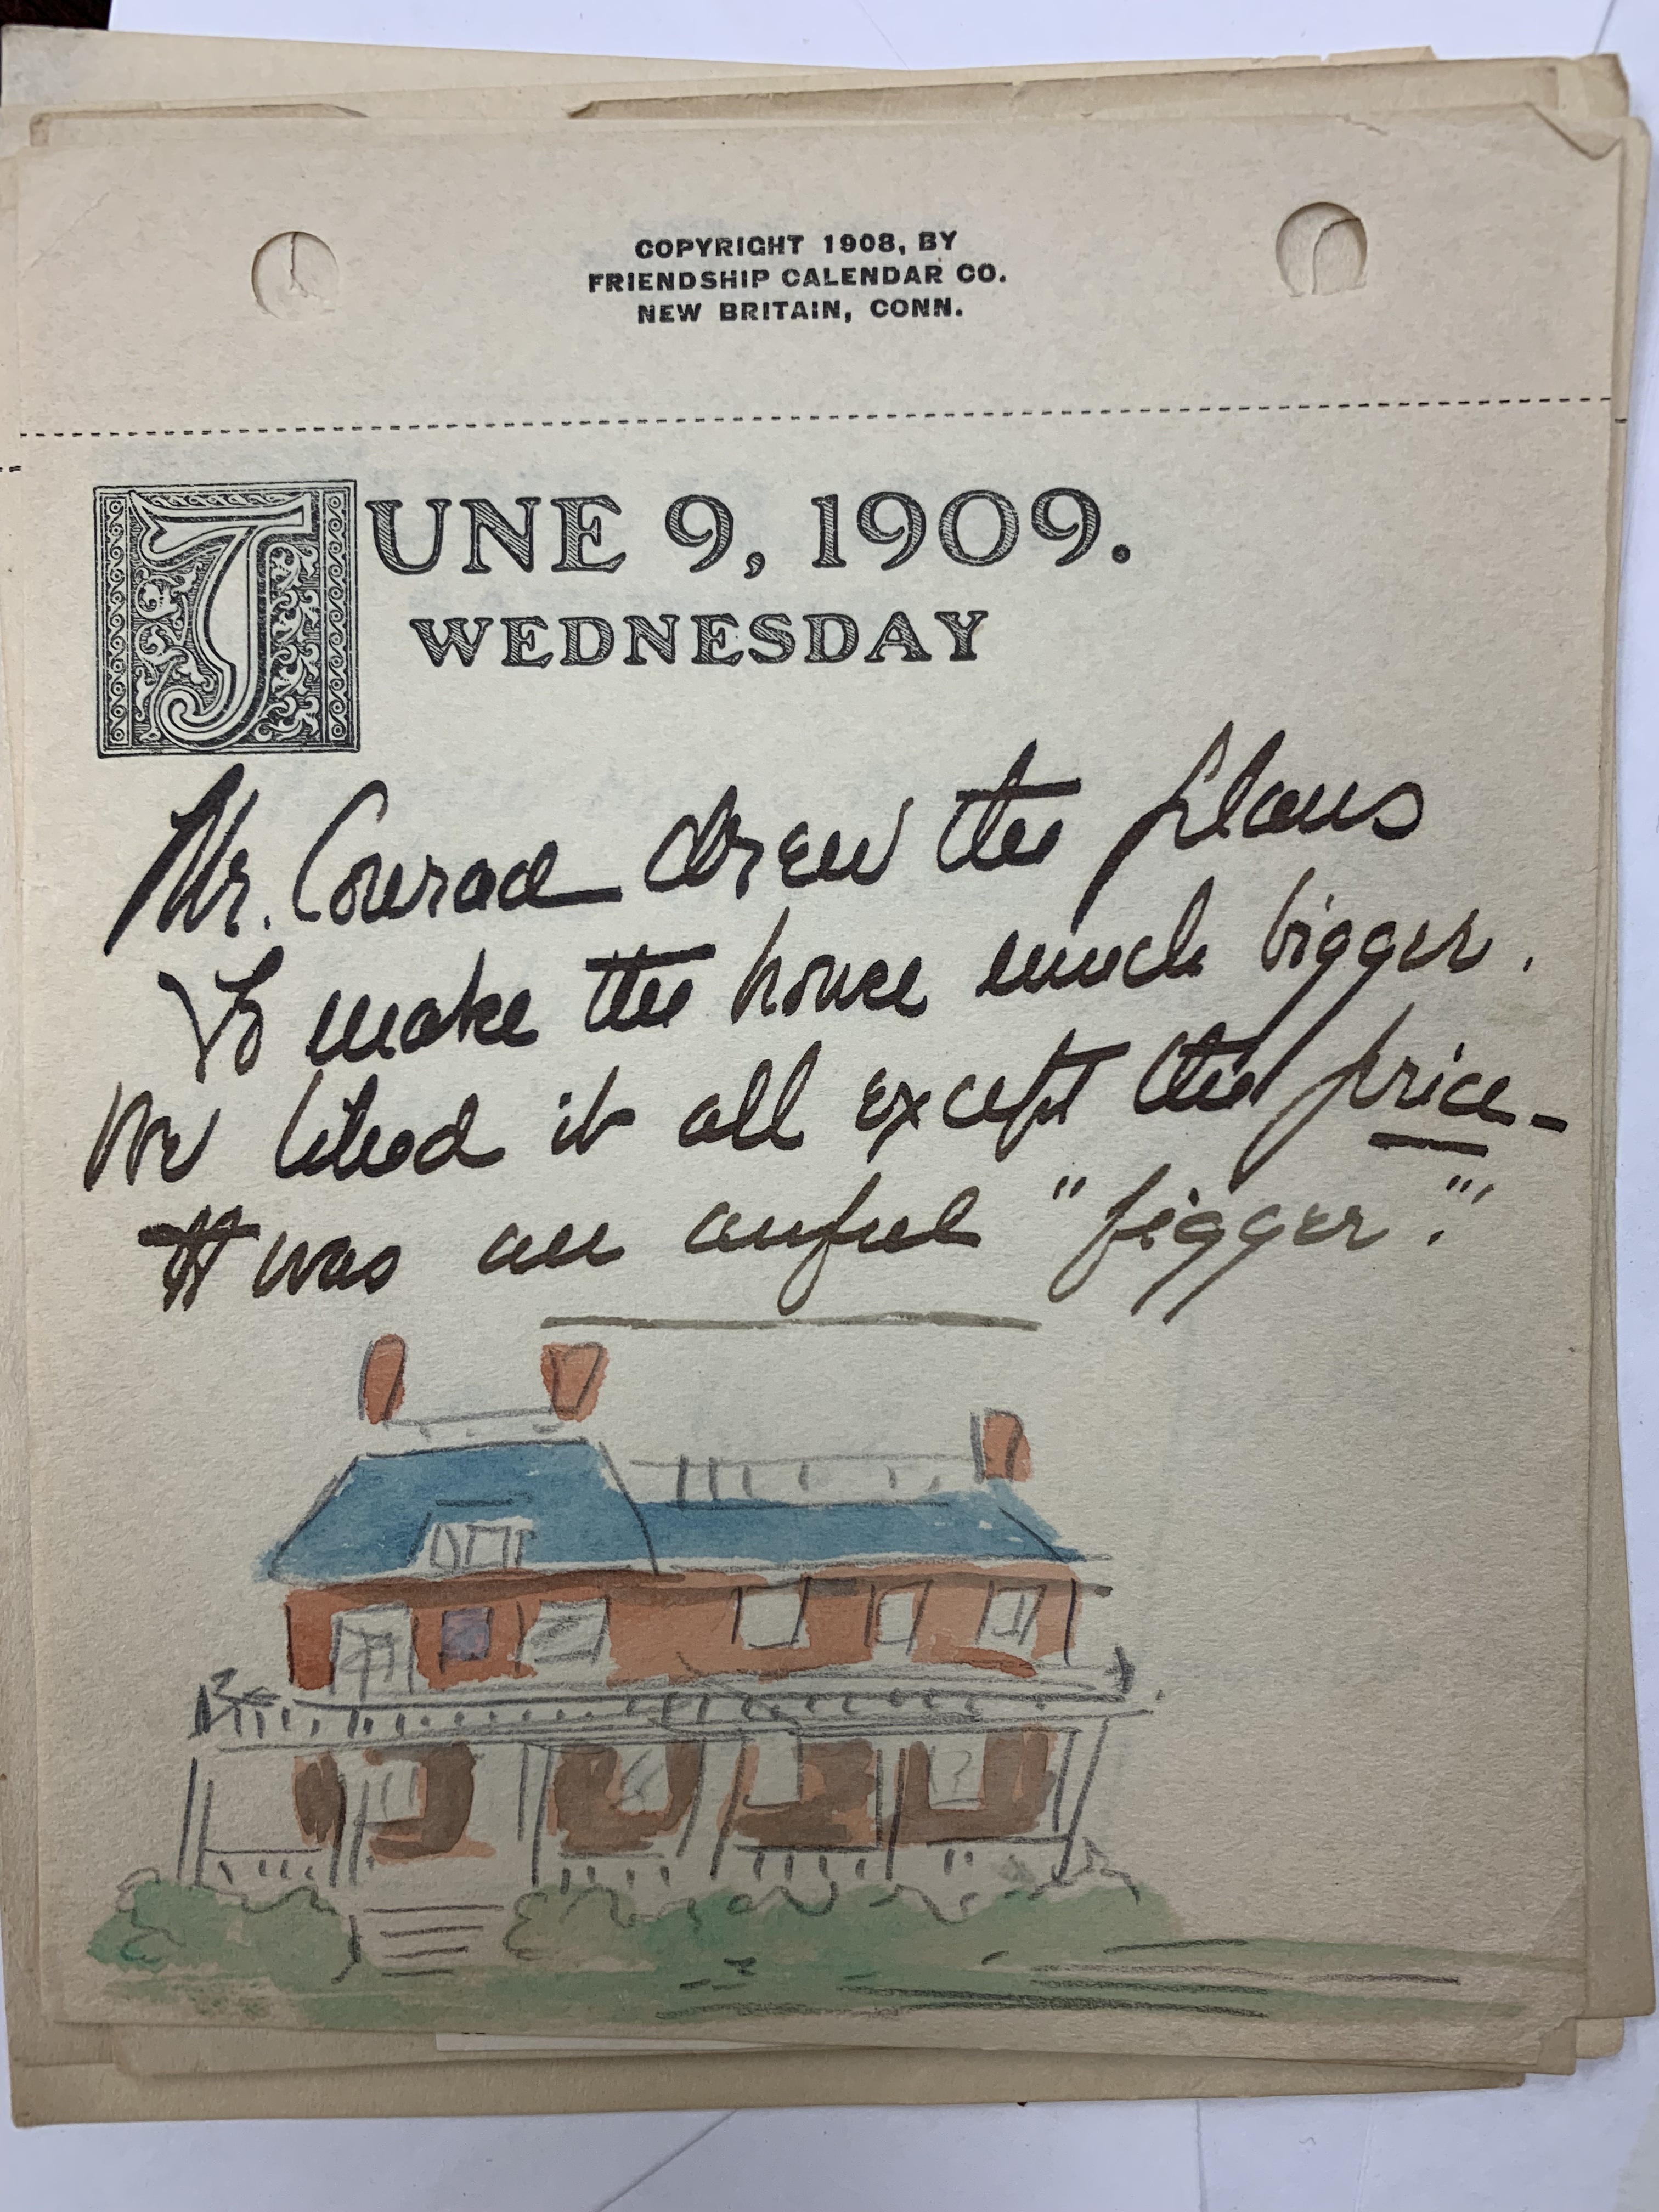 COPYRIGHT 1908, BY
FRIENDSHIP CALENDAR CO.
NEW BRITAIN, CONN.
JUNE 9, 1909.
WEDNESDAY
Mr. Conrad drew the plans
To make the house much bigger.
We liked it all except the price—
It was an awful "figger".